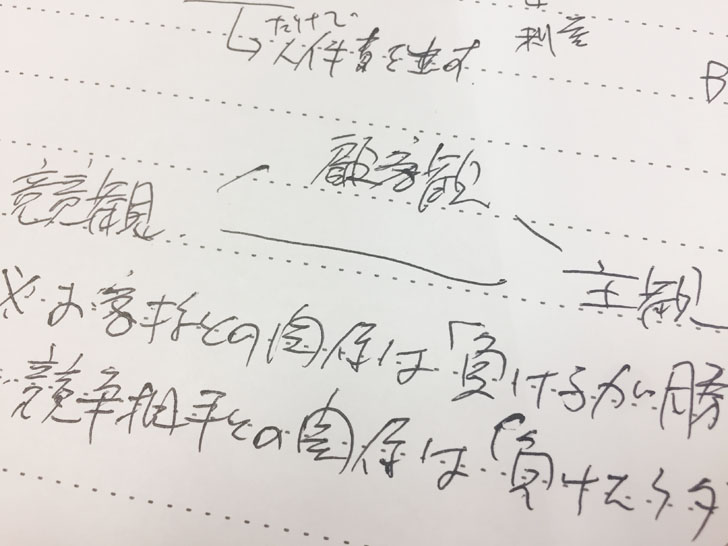 だけで 利害
人件費を出す
B
顧客観
競観
主観
※お客様との関係は「負けるが勝
競争相手との関係は「負けたら